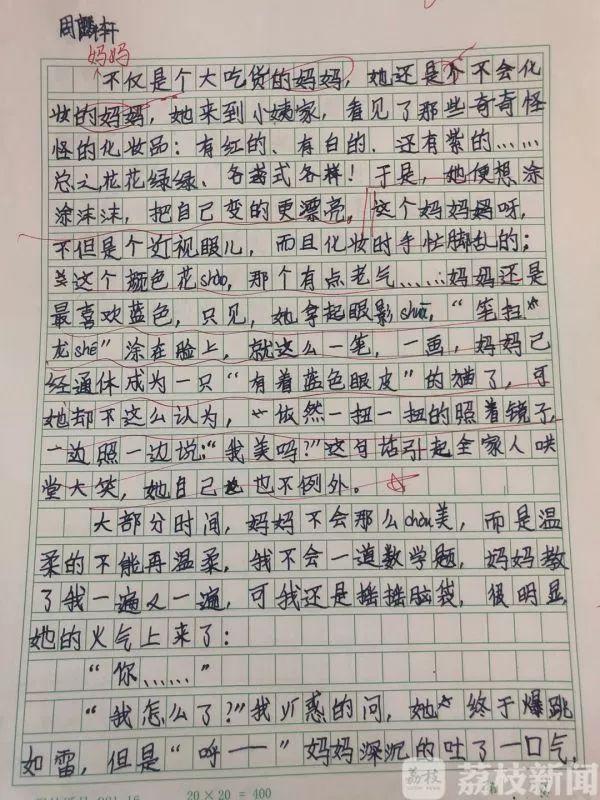 周麟轩
妈妈
不仅是个大吃货的妈妈，她还是个不会化
妆的妈妈，她来到小姨家，看见了那些奇奇怪
怪的化妆品：有红的、有白的、还有紫的……
总之花花绿绿、各式各样！于是，她便想涂
涂沫沫，把自己变的更漂亮，这个妈妈呀，
不但是个近视眼儿，而且化妆时手忙脚乱的；
这个颜色花shào，那个有点老气……妈妈还是
最喜欢蓝色，只见，她拿起眼影shuā，“笔扫
龙shé”涂在脸上，就这么一笔，一画，妈妈已
经通体成为一只“有着蓝色眼皮”的猫了，可
她却不这么认为，依然一扭一扭的照着镜子，
一边照一边说：“我美吗？”这句话引起全家人哄
堂大笑，她自己也不例外。
大部分时间，妈妈不会那么chòu美，而是温
柔的不能再温柔，我不会一道数学题，妈妈教
了我一遍又一遍，可我还是摇摇脑袋，很明显，
她的火气上来了：
“你……”
“我怎么了？”我惑的问，她终于爆跳
如雷，但是“呼——”妈妈深沉的吐了一口气，
20×20=400
荔枝
荔枝新闻